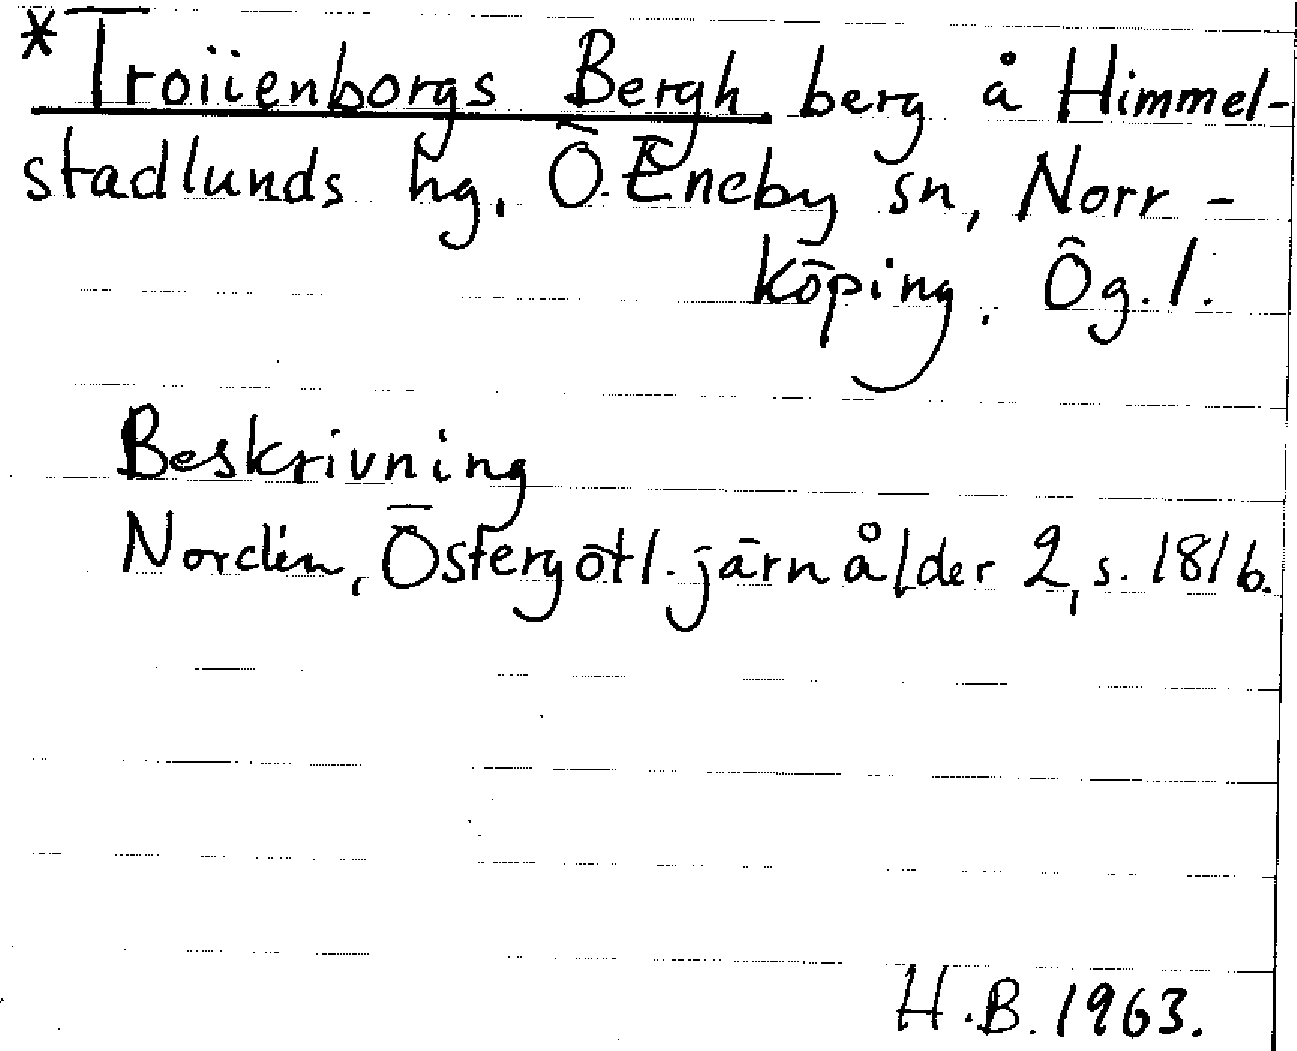 *Troiienborgs Bergh berg å Himmel-
stadlunds hg, Ö. Eneby sn, Norr-
köping. Ög. l.
Beskrivning
Nordén, Östergötl. järnålder 2, s. 181 b.
H.B. 1963.